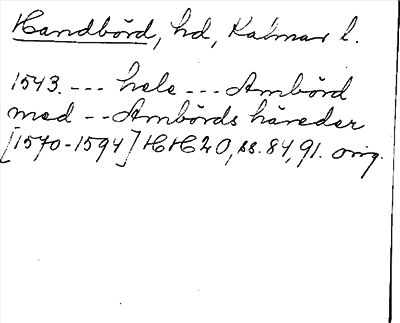 Handbörd, hd, Kalmar l.
1543. --- hele --- Ambörd
med -- Ambörds häreder
[1570-1594] HH20, ss. 84, 91. orig.